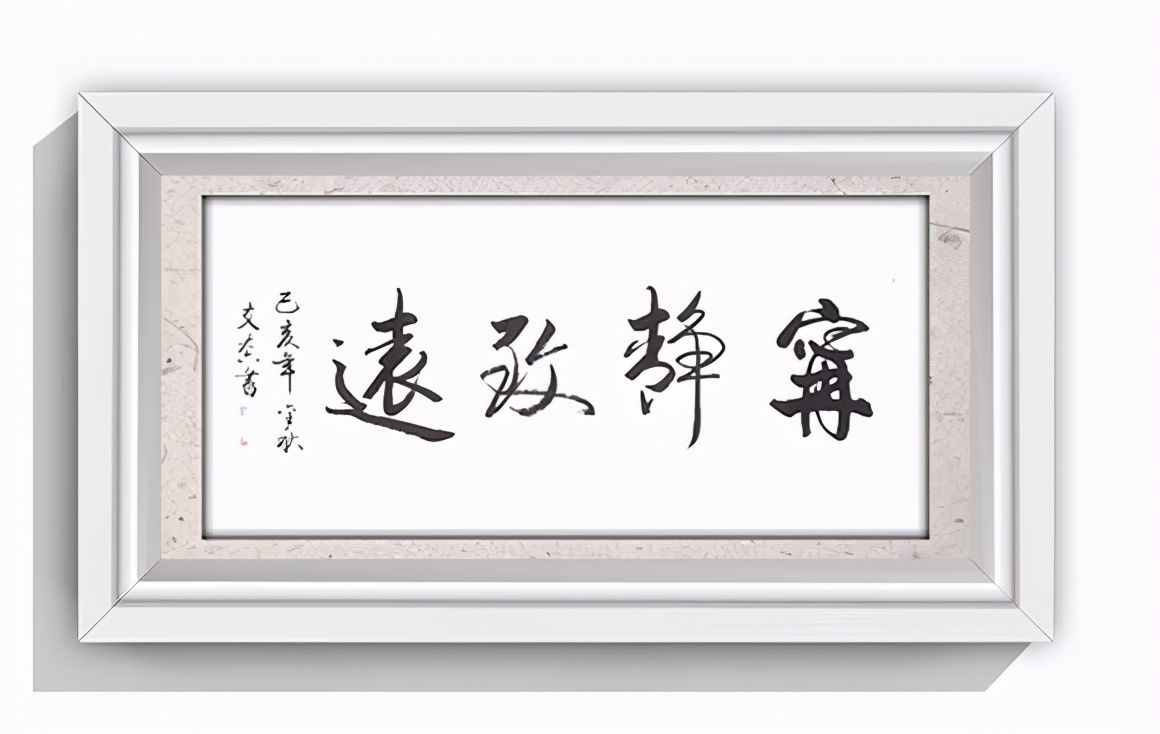 寧靜致遠
己亥年金秋
文志書